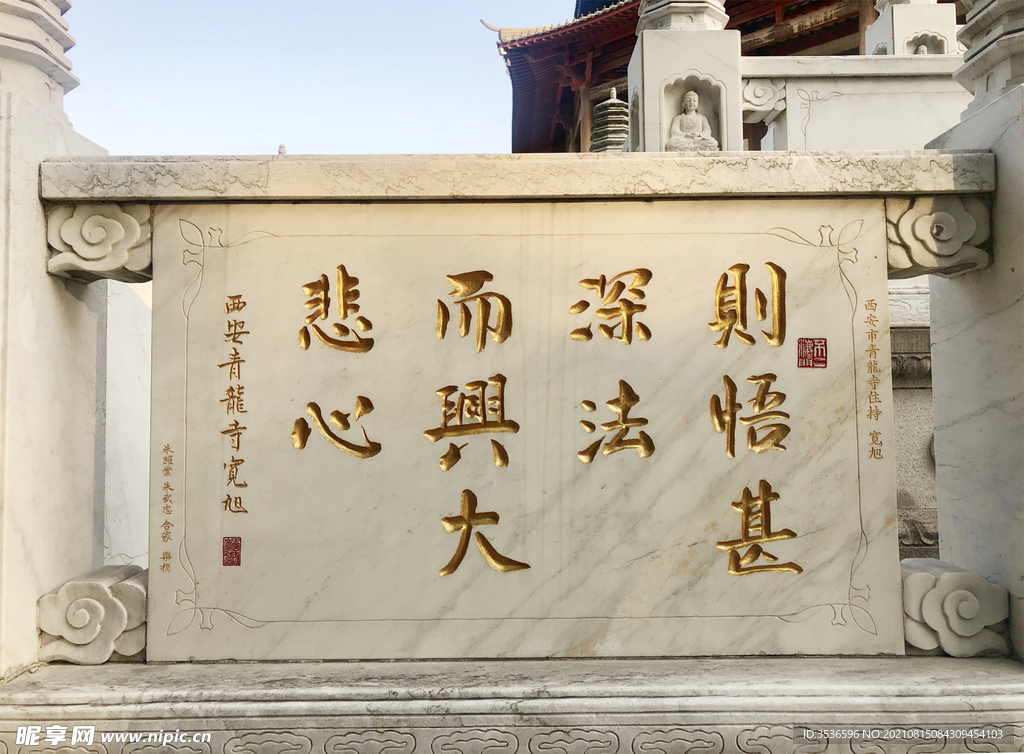 西安市青龍寺住持 寬旭
則悟甚
深法
而興大
悲心
西安青龍寺寬旭
合家
昵享网 www.nipic.cn
ID:3536596 NO:20210815084309454103